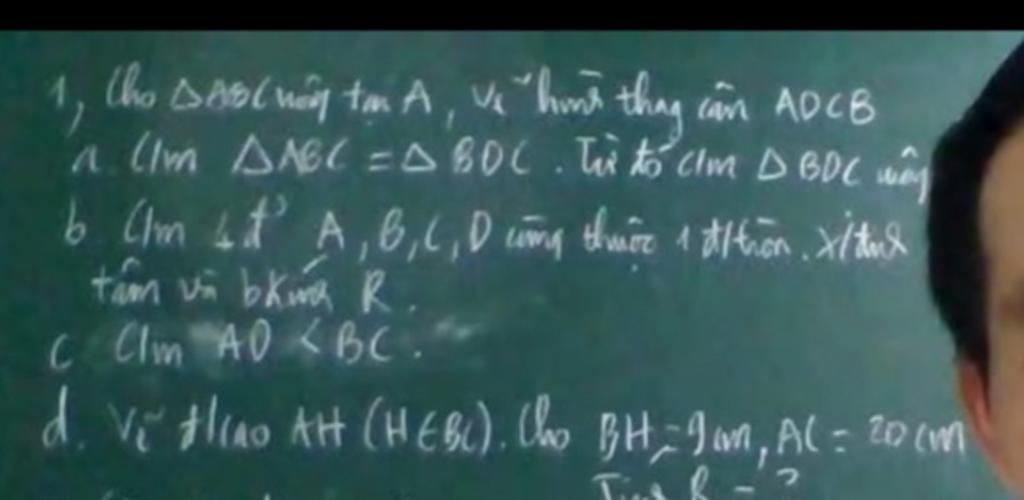 1, Cho △ABC vuông tại A, vẽ hình thang cân ADCB
a. C/m △ABC = △BDC. Từ đó c/m △BDC vuông
b C/m 4 đ' A, B, C, D cùng thuộc 1 đ/tròn. X/định
tâm và bkính R.
c C/m AD < BC.
d. Vẽ đ/cao AH (H∈BC). Cho BH = 9cm, AC = 20cm
Tính R = ?